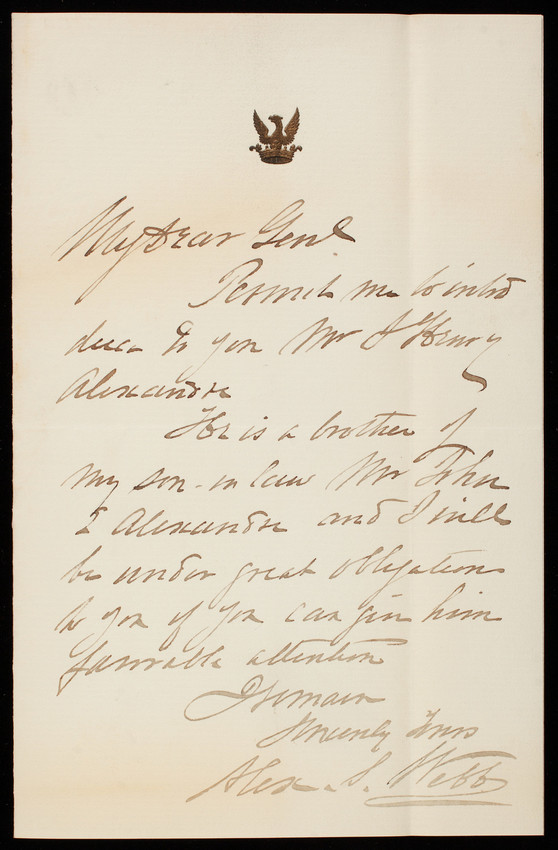 My Dear Genl
Permit me to intro
duce to you Mr J Henry
Alexandre
He is a brother of
my son-in law Mr John
E Alexandre and I will
be under great obligations
to you if you can give him
favorable attention
I remain
Sincerely Yours
Alex. S. Webb